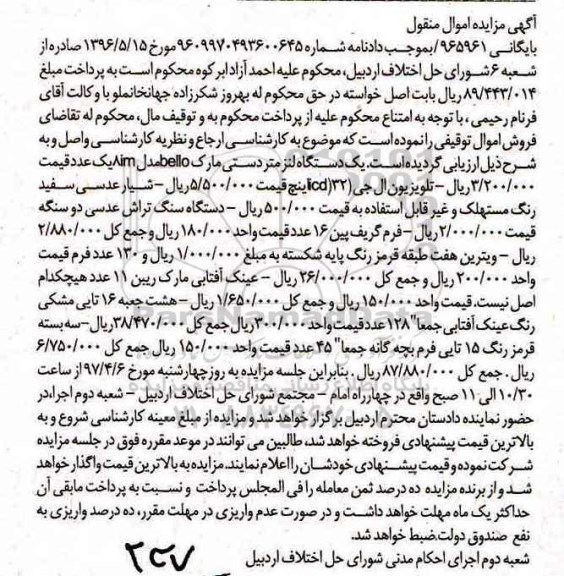 آگهی مزایده اموال منقول
بایگانی ۹۶۵۹۶۱/بموجب دادنامه شماره ۹۶۰۹۹۷۰۴۹۳۶۰۰۶۴۵مورخ ۱۳۹۶/۵/۱۵ صادره از
شعبه ۶شورای حل اختلاف اردبیل، محکوم علیه احمد آزاد ابرکوه محکوم است به پرداخت مبلغ
۸۹/۴۴۳/۰۱۴ ریال بابت اصل خواسته در حق محکوم له بهروز شکرزاده جهانخانملو با وکالت آقای
فرنام رحیمی ، با توجه به امتناع محکوم علیه از پرداخت محکوم به و توقیف مال، محکوم له تقاضای
فروش اموال توقیفی را نموده است که موضوع به کارشناسی ارجاع و نظریه کارشناسی واصل و به
شرح ذیل ارزیابی گردیده است. یک دستگاه لنز متر دستی مارک belloمدل ۸imیک عدد قیمت
۳/۲۰۰/۰۰۰ ریال – تلویزیون ال جی (۳۲(lcdاینچ قیمت ۵/۵۰۰/۰۰۰ ریال – شیار عدسی سفید
رنگ مستهلک و غیر قابل استفاده به قیمت ۵۰۰/۰۰۰ ریال – دستگاه سنگ تراش عدسی دو سنگه
قیمت ۲/۰۰۰/۰۰۰ ریال – فرم گریف پین ۱۶ عدد قیمت واحد ۱۸۰/۰۰۰ ریال و جمع کل ۲/۸۸۰/۰۰۰
ریال – ویترین هفت طبقه قرمز رنگ پایه شکسته به مبلغ ۱/۰۰۰/۰۰۰ ریال و ۱۳۰ عدد فرم قیمت
واحد ۲۰۰/۰۰۰ ریال و جمع کل ۲۶/۰۰۰/۰۰۰ ریال – عینک آفتابی مارک ریبن ۱۱ عدد هیچکدام
اصل نیست. قیمت واحد ۱۵۰/۰۰۰ ریال و جمع کل ۱/۶۵۰/۰۰۰ ریال – هشت جعبه ۱۶ تایی مشکی
رنگ عینک آفتابی جمعا" ۱۲۸ عدد قیمت واحد ۳۰۰/۰۰۰ریال جمع کل ۳۸/۴۷۰/۰۰۰ریال –سه بسته
قرمز رنگ ۱۵ تایی فرم بچه گانه جمعا" ۴۵ عدد قیمت واحد ۱۵۰/۰۰۰ ریال جمع کل ۶/۷۵۰/۰۰۰
ریال . جمع کل ۸۷/۸۸۰/۰۰۰ ریال . بنابراین جلسه مزایده به روز چهارشنبه مورخ ۹۷/۴/۶ از ساعت
۱۰/۳۰ الی ۱۱ صبح واقع در چهارراه امام – مجتمع شورای حل اختلاف اردبیل – شعبه دوم اجرا، در
حضور نماینده دادستان محترم اردبیل برگزار خواهد شد و مزایده از مبلغ معینه کارشناسی شروع و به
بالاترین قیمت پیشنهادی فروخته خواهد شد، طالبین می توانند در موعد مقرره فوق در جلسه مزایده
شرکت نموده و قیمت پیشنهادی خودشان را اعلام نمایند. مزایده به بالاترین قیمت واگذار خواهد
شد و از برنده مزایده ده درصد ثمن معامله را فی المجلس پرداخت و نسبت به پرداخت مابقی آن
حداکثر یک ماه مهلت خواهد داشت و در صورت عدم واریزی در مهلت مقرر، ده درصد واریزی به
نفع صندوق دولت.ضبط خواهد شد.
شعبه دوم اجرای احکام مدنی شورای حل اختلاف اردبیل
۲۵۷